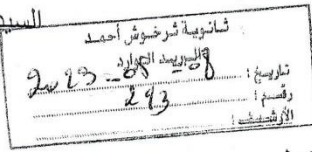 السيد
ثانوية شرخوش أحمد
البريد الوارد
تاريخ :
رقم : 293
الأرشيف :